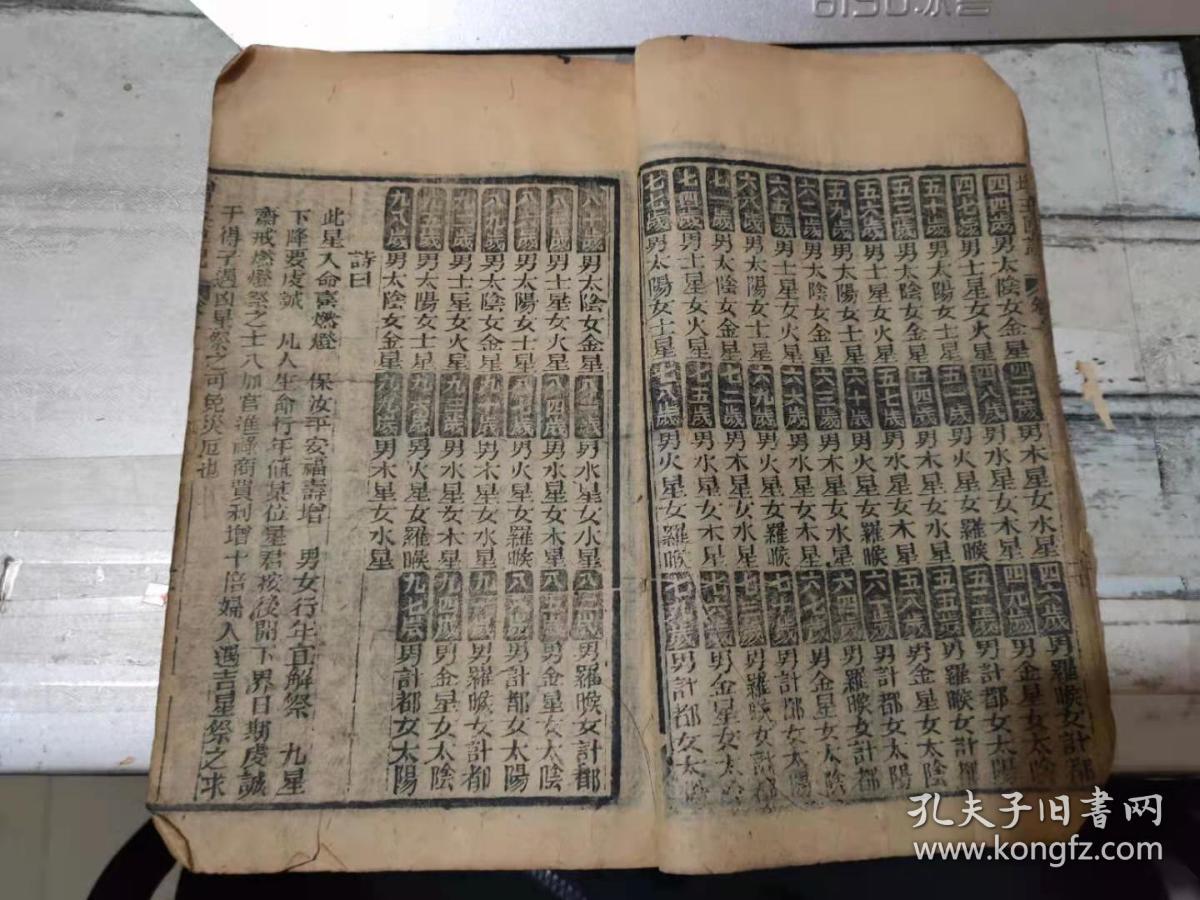 四四歲男太陰女金星四五歲男木星女水星四六歲男羅睺女計都
四七歲男土星女火星四八歲男水星女木星四九歲男金星女太陰
五十歲男太陽女土星五一歲男火星女羅睺五二歲男計都女太陽
五三歲男太陰女金星五四歲男木星女水星五五歲男羅睺女計都
五六歲男土星女火星五七歲男水星女木星五八歲男金星女太陰
五九歲男太陽女土星六十歲男火星女羅睺六一歲男計都女太陽
六二歲男太陰女金星六三歲男木星女水星六四歲男羅睺女計都
六五歲男土星女火星六六歲男水星女木星六七歲男金星女太陰
六八歲男太陽女土星六九歲男火星女羅睺七十歲男計都女太陽
七一歲男太陰女金星七二歲男木星女水星七三歲男羅睺女計都
七四歲男土星女火星七五歲男水星女木星七六歲男金星女太陰
七七歲男太陽女土星七八歲男火星女羅睺七九歲男計都女太陽
八十歲男太陰女金星八一歲男木星女水星八二歲男羅睺女計都
八三歲男土星女火星八四歲男水星女木星八五歲男金星女太陰
八六歲男太陽女土星八七歲男火星女羅睺八八歲男計都女太陽
八九歲男太陰女金星九十歲男木星女水星九一歲男羅睺女計都
九二歲男土星女火星九三歲男水星女木星九四歲男金星女太陰
九五歲男太陽女土星九六歲男火星女羅睺九七歲男計都女太陽
九八歲男太陰女金星九九歲男木星女水星
詩曰
此星入命喜燃燈 保汝平安福壽增 男女行年宜解祭 九星
下降要虔誠 凡人生命行年值某位星君按後開下界日期虔誠
齋戒燃燈祭之士人加官進祿商賈利增十倍婦人遇吉星祭之求
子得子遇凶星祭之可免災厄也
孔夫子旧书网
www.kongfz.com